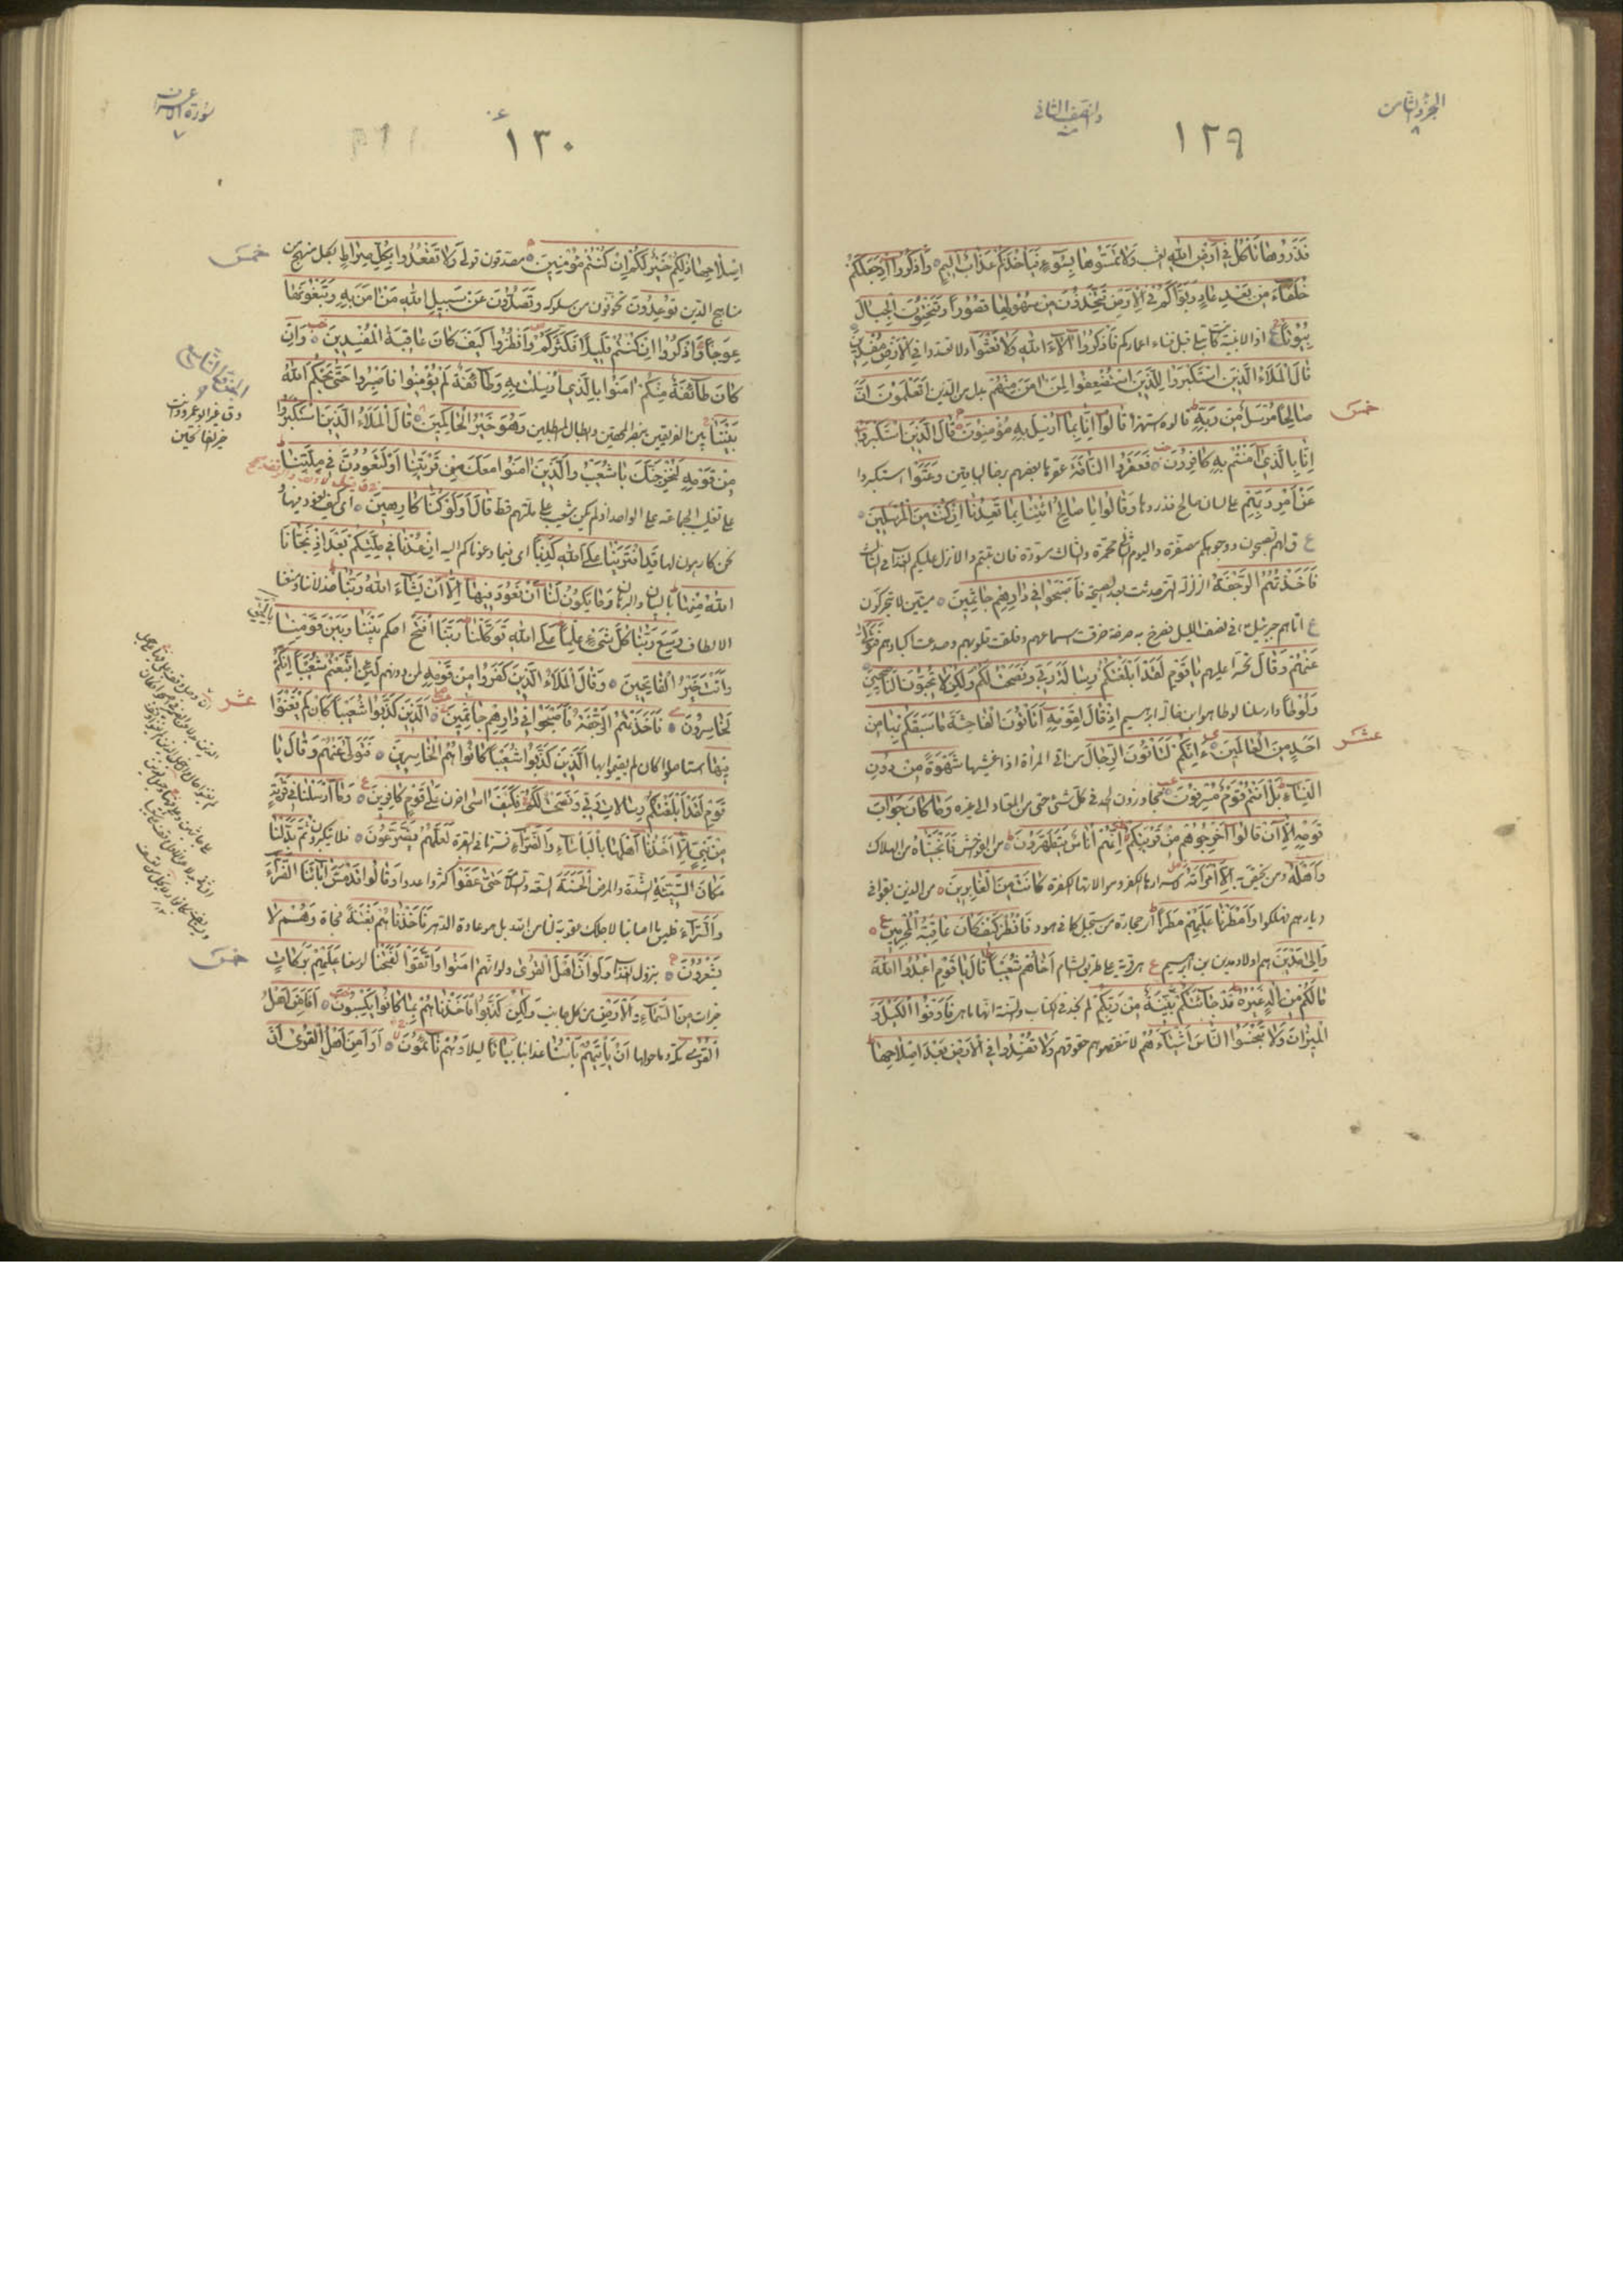 الجزء الثامن
٨
والنصف الثاني
١٢٩
فَذَرُوهَا تَأْكُلْ فِي أَرْضِ اللهِ العشب وَلَا تَمَسُّوهَا بِسُوءٍ فَيَأْخُذَكُمْ عَذَابٌ أَلِيمٌ وَاذْكُرُوا إِذْ جَعَلَكُمْ
خُلَفَاءَ مِنْ بَعْدِ عَادٍ وَبَوَّأَكُمْ فِي الْأَرْضِ تَتَّخِذُونَ مِنْ سُهُولِهَا قُصُورًا وَتَنْحِتُونَ الْجِبَالَ
بُيُوتًا ع اذ الابنية كانت تبلى قبل فناء اعمارهم فَاذْكُرُوا آلَاءَ اللهِ وَلَا تَعْثَوْا ولا تفسدوا فِي الْأَرْضِ مُفْسِدِينَ
قَالَ الْمَلَأُ الَّذِينَ اسْتَكْبَرُوا لِلَّذِينَ اسْتُضْعِفُوا لِمَنْ آمَنَ مِنْهُمْ بدل من الذين أَتَعْلَمُونَ أَنَّ
صَالِحًا مُرْسَلٌ مِنْ رَبِّهِ قالوه استهزاء قَالُوا إِنَّا بِمَا أُرْسِلَ بِهِ مُؤْمِنُونَ قَالَ الَّذِينَ اسْتَكْبَرُوا
خمس
إِنَّا بِالَّذِي آمَنْتُمْ بِهِ كَافِرُونَ فَعَقَرُوا النَّاقَةَ عقرها بعضهم برضا الباقين وَعَتَوْا استكبروا
عَنْ أَمْرِ رَبِّهِمْ على لسان صالح فذروها وَقَالُوا يَا صَالِحُ ائْتِنَا بِمَا تَعِدُنَا إِنْ كُنْتَ مِنَ الْمُرْسَلِينَ
ع قال لهم تصبحون ووجوهكم مصفرة واليوم الثاني محمرة والثالث مسودة فان تبتم والا نزل عليكم العذاب في الثالث
فَأَخَذَتْهُمُ الرَّجْفَةُ الزلزلة التي حدثت بعد الصيحة فَأَصْبَحُوا فِي دَارِهِمْ جَاثِمِينَ ميتين لا يتحركون
ع اتاهم جبرئيل في نصف الليل فصرخ بهم صرخة خرقت اسماعهم وفلقت قلوبهم وصدعت اكبادهم فَتَوَلَّى
عَنْهُمْ وَقَالَ تحسرا عليهم يَا قَوْمِ لَقَدْ أَبْلَغْتُكُمْ رِسَالَةَ رَبِّي وَنَصَحْتُ لَكُمْ وَلَكِنْ لَا تُحِبُّونَ النَّاصِحِينَ
وَلُوطًا وارسلنا لوطا هو ابن خالة ابرهيم إِذْ قَالَ لِقَوْمِهِ أَتَأْتُونَ الْفَاحِشَةَ مَا سَبَقَكُمْ بِهَا مِنْ
أَحَدٍ مِنَ الْعَالَمِينَ ءَإِنَّكُمْ لَتَأْتُونَ الرِّجَالَ من اتى المرأة اذا غشيها شَهْوَةً مِنْ دُونِ
عشر
النِّسَاءِ بَلْ أَنْتُمْ قَوْمٌ مُسْرِفُونَ متجاوزون الحد في كل شئ حتى من المعتاد الى غيره وَمَا كَانَ جَوَابَ
قَوْمِهِ إِلَّا أَنْ قَالُوا أَخْرِجُوهُمْ مِنْ قَرْيَتِكُمْ إِنَّهُمْ أُنَاسٌ يَتَطَهَّرُونَ من الفواحش فَأَنْجَيْنَاهُ من الهلاك
وَأَهْلَهُ ومن يختص به إِلَّا امْرَأَتَهُ لاسرارها الكفر وموالاتها الكفرة كَانَتْ مِنَ الْغَابِرِينَ من الذين بقوا في
ديارهم فهلكوا وَأَمْطَرْنَا عَلَيْهِمْ مَطَرًا اى حجارة من سجيل كما في هود فَانْظُرْ كَيْفَ كَانَ عَاقِبَةُ الْمُجْرِمِينَ
وَإِلَى مَدْيَنَ هم اولاد مدين بن ابرهيم ع هو قرية على طريق الشام أَخَاهُمْ شُعَيْبًا قَالَ يَا قَوْمِ اعْبُدُوا اللهَ
مَا لَكُمْ مِنْ إِلَهٍ غَيْرُهُ قَدْ جَاءَتْكُمْ بَيِّنَةٌ مِنْ رَبِّكُمْ لم نجد في الكتاب والسنة انها ما هي فَأَوْفُوا الْكَيْلَ وَ
الْمِيزَانَ وَلَا تَبْخَسُوا النَّاسَ أَشْيَاءَهُمْ لا تنقصوهم حقوقهم وَلَا تُفْسِدُوا فِي الْأَرْضِ بَعْدَ إِصْلَاحِهَا
سورة الاعراف
٧
١٣٠
إِصْلَاحِهَا ذَلِكُمْ خَيْرٌ لَكُمْ إِنْ كُنْتُمْ مُؤْمِنِينَ مصدقون قولى وَلَا تَقْعُدُوا بِكُلِّ صِرَاطٍ بكل منهج من
خمس
مناهج الدين تُوعِدُونَ تخوفون من سلوكه وَتَصُدُّونَ عَنْ سَبِيلِ اللهِ مَنْ آمَنَ بِهِ وَتَبْغُونَهَا
عِوَجًا وَاذْكُرُوا إِذْ كُنْتُمْ قَلِيلًا فَكَثَّرَكُمْ وَانْظُرُوا كَيْفَ كَانَ عَاقِبَةُ الْمُفْسِدِينَ وَإِنْ
كَانَ طَائِفَةٌ مِنْكُمْ آمَنُوا بِالَّذِي أُرْسِلْتُ بِهِ وَطَائِفَةٌ لَمْ يُؤْمِنُوا فَاصْبِرُوا حَتَّى يَحْكُمَ اللهُ
بَيْنَنَا بين الفريقين بنصر المحقين وابطال المبطلين وَهُوَ خَيْرُ الْحَاكِمِينَ قَالَ الْمَلَأُ الَّذِينَ اسْتَكْبَرُوا
مِنْ قَوْمِهِ لَنُخْرِجَنَّكَ يَا شُعَيْبُ وَالَّذِينَ آمَنُوا مَعَكَ مِنْ قَرْيَتِنَا أَوْ لَتَعُودُنَّ فِي مِلَّتِنَا
على تغليب الجماعة على الواحد اذ لم يكن شعيب على ملتهم قط قَالَ أَوَلَوْ كُنَّا كَارِهِينَ اى كيف نعود فيها و
نحن كارهون لها قَدِ افْتَرَيْنَا عَلَى اللهِ كَذِبًا اى فيما دعوناكم اليه إِنْ عُدْنَا فِي مِلَّتِكُمْ بَعْدَ إِذْ نَجَّانَا
اللهُ مِنْهَا بالبيان والبرهان وَمَا يَكُونُ لَنَا أَنْ نَعُودَ فِيهَا إِلَّا أَنْ يَشَاءَ اللهُ رَبُّنَا خذلاننا ومنعنا
الالطاف وَسِعَ رَبُّنَا كُلَّ شَيْءٍ عِلْمًا عَلَى اللهِ تَوَكَّلْنَا رَبَّنَا افْتَحْ احكم بَيْنَنَا وَبَيْنَ قَوْمِنَا
بِالْحَقِّ
وَأَنْتَ خَيْرُ الْفَاتِحِينَ وَقَالَ الْمَلَأُ الَّذِينَ كَفَرُوا مِنْ قَوْمِهِ لمن دونهم لَئِنِ اتَّبَعْتُمْ شُعَيْبًا إِنَّكُمْ
لَخَاسِرُونَ فَأَخَذَتْهُمُ الرَّجْفَةُ فَأَصْبَحُوا فِي دَارِهِمْ جَاثِمِينَ الَّذِينَ كَذَّبُوا شُعَيْبًا كَأَنْ لَمْ يَغْنَوْا
عشر
فِيهَا استاصلوا كان لم يقيموا بها الَّذِينَ كَذَّبُوا شُعَيْبًا كَانُوا هُمُ الْخَاسِرِينَ فَتَوَلَّى عَنْهُمْ وَقَالَ يَا
قَوْمِ لَقَدْ أَبْلَغْتُكُمْ رِسَالَاتِ رَبِّي وَنَصَحْتُ لَكُمْ فَكَيْفَ آسَى احزن عَلَى قَوْمٍ كَافِرِينَ وَمَا أَرْسَلْنَا فِي قَرْيَةٍ
مِنْ نَبِيٍّ إِلَّا أَخَذْنَا أَهْلَهَا بِالْبَأْسَاءِ وَالضَّرَّاءِ لَعَلَّهُمْ يَضَّرَّعُونَ فلا يتكبرون ثُمَّ بَدَّلْنَا
مَكَانَ السَّيِّئَةِ الشدة والمرض الْحَسَنَةَ السعة والسلامة حَتَّى عَفَوْا كثروا عددا وَقَالُوا قَدْ مَسَّ آبَاءَنَا الضَّرَّاءُ
وَالسَّرَّاءُ فليس ما اصابنا لاجلك عقوبة لنا من الله بل هو عادة الدهر فَأَخَذْنَاهُمْ بَغْتَةً فجأة وَهُمْ لَا
يَشْعُرُونَ بنزول العذاب وَلَوْ أَنَّ أَهْلَ الْقُرَى ولو انهم آمَنُوا وَاتَّقَوْا لَفَتَحْنَا لوسعنا عَلَيْهِمْ بَرَكَاتٍ
خمس
خيرات مِنَ السَّمَاءِ وَالْأَرْضِ من كل جانب وَلَكِنْ كَذَّبُوا فَأَخَذْنَاهُمْ بِمَا كَانُوا يَكْسِبُونَ أَفَأَمِنَ أَهْلُ
الْقُرَى مكة وما حولها أَنْ يَأْتِيَهُمْ بَأْسُنَا عذابنا بَيَاتًا ليلا وَهُمْ نَائِمُونَ أَوَأَمِنَ أَهْلُ الْقُرَى أَنْ